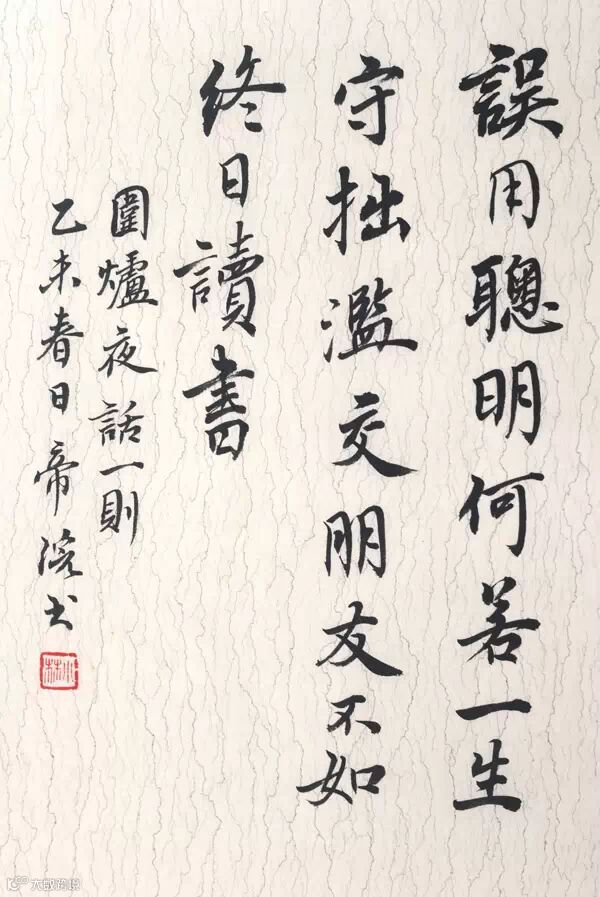 誤用聰明何若一生
守拙濫交朋友不如
終日讀書
圍爐夜話一則
乙未春日帝浣書